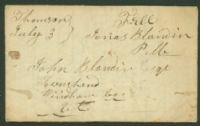 Thomson
July 3
Free
Jonas Blandin
P.M.
John Blandin Esq
Windham Co